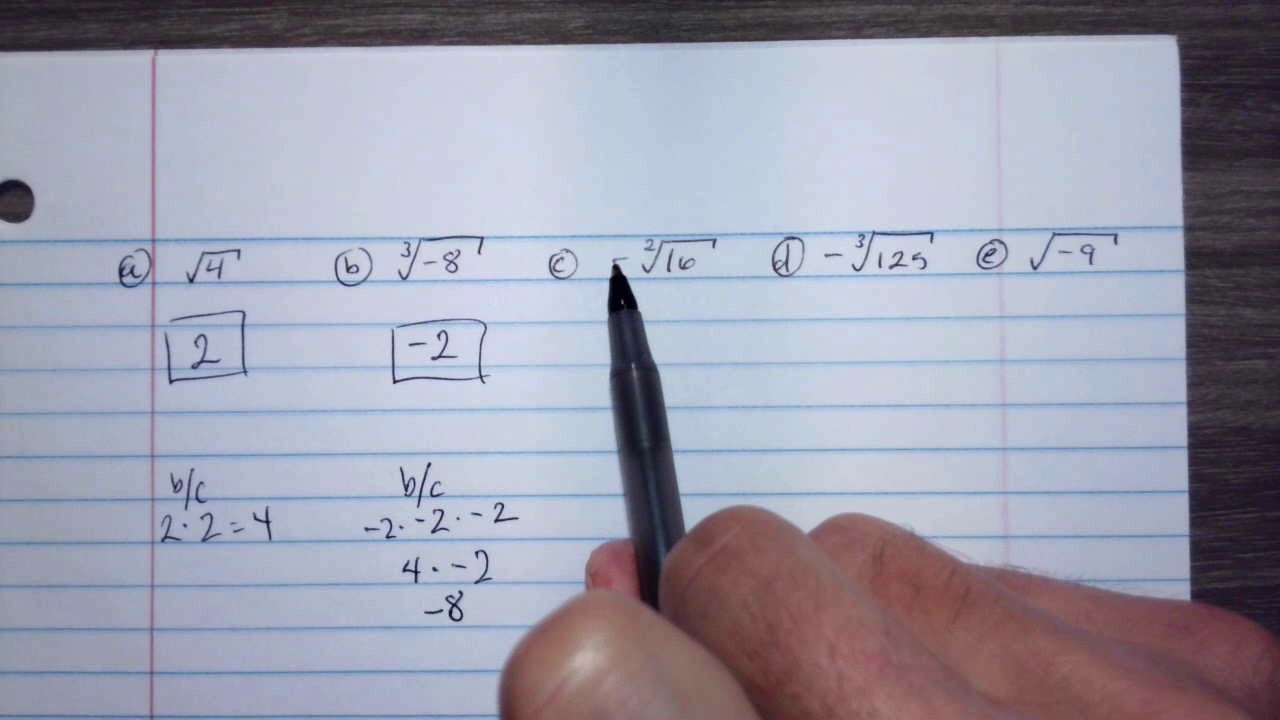 ⓐ √4 ⓑ ∛-8 ⓒ - ²√16 ⓓ -∛125 ⓔ √-9
2 -2
b/c b/c
2·2=4 -2·-2·-2
4·-2
-8